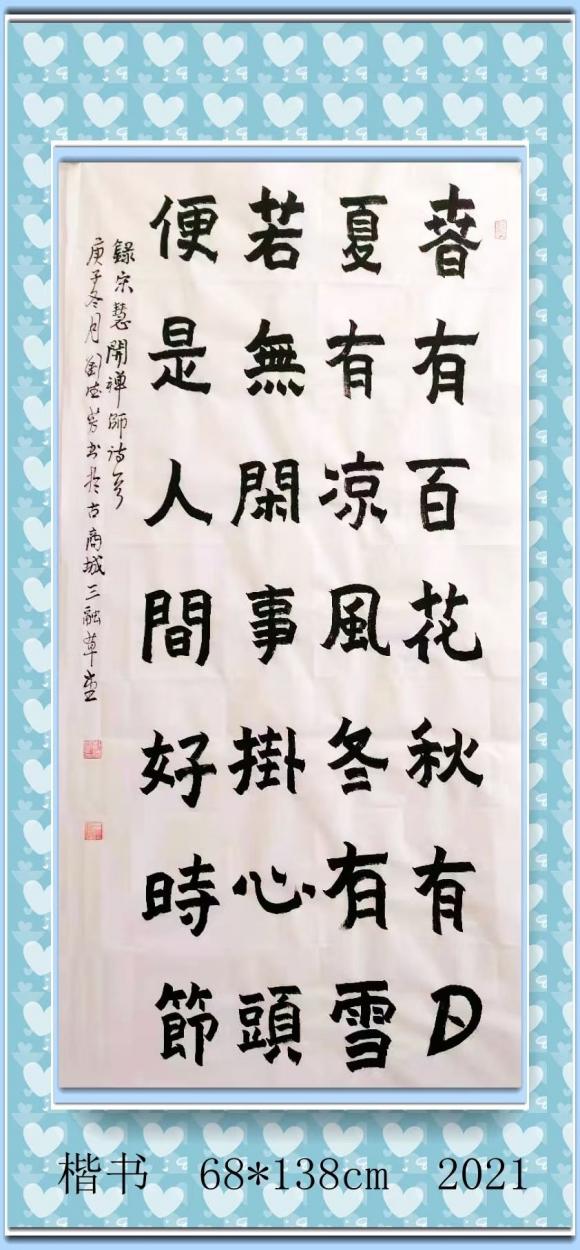 春有百花秋有月
夏有凉風冬有雪
若無閑事掛心頭
便是人間好時節
錄宋慧開禅師诗一首
庚子冬月劉宏芳书於古商城三融草堂
楷书 68*138cm 2021